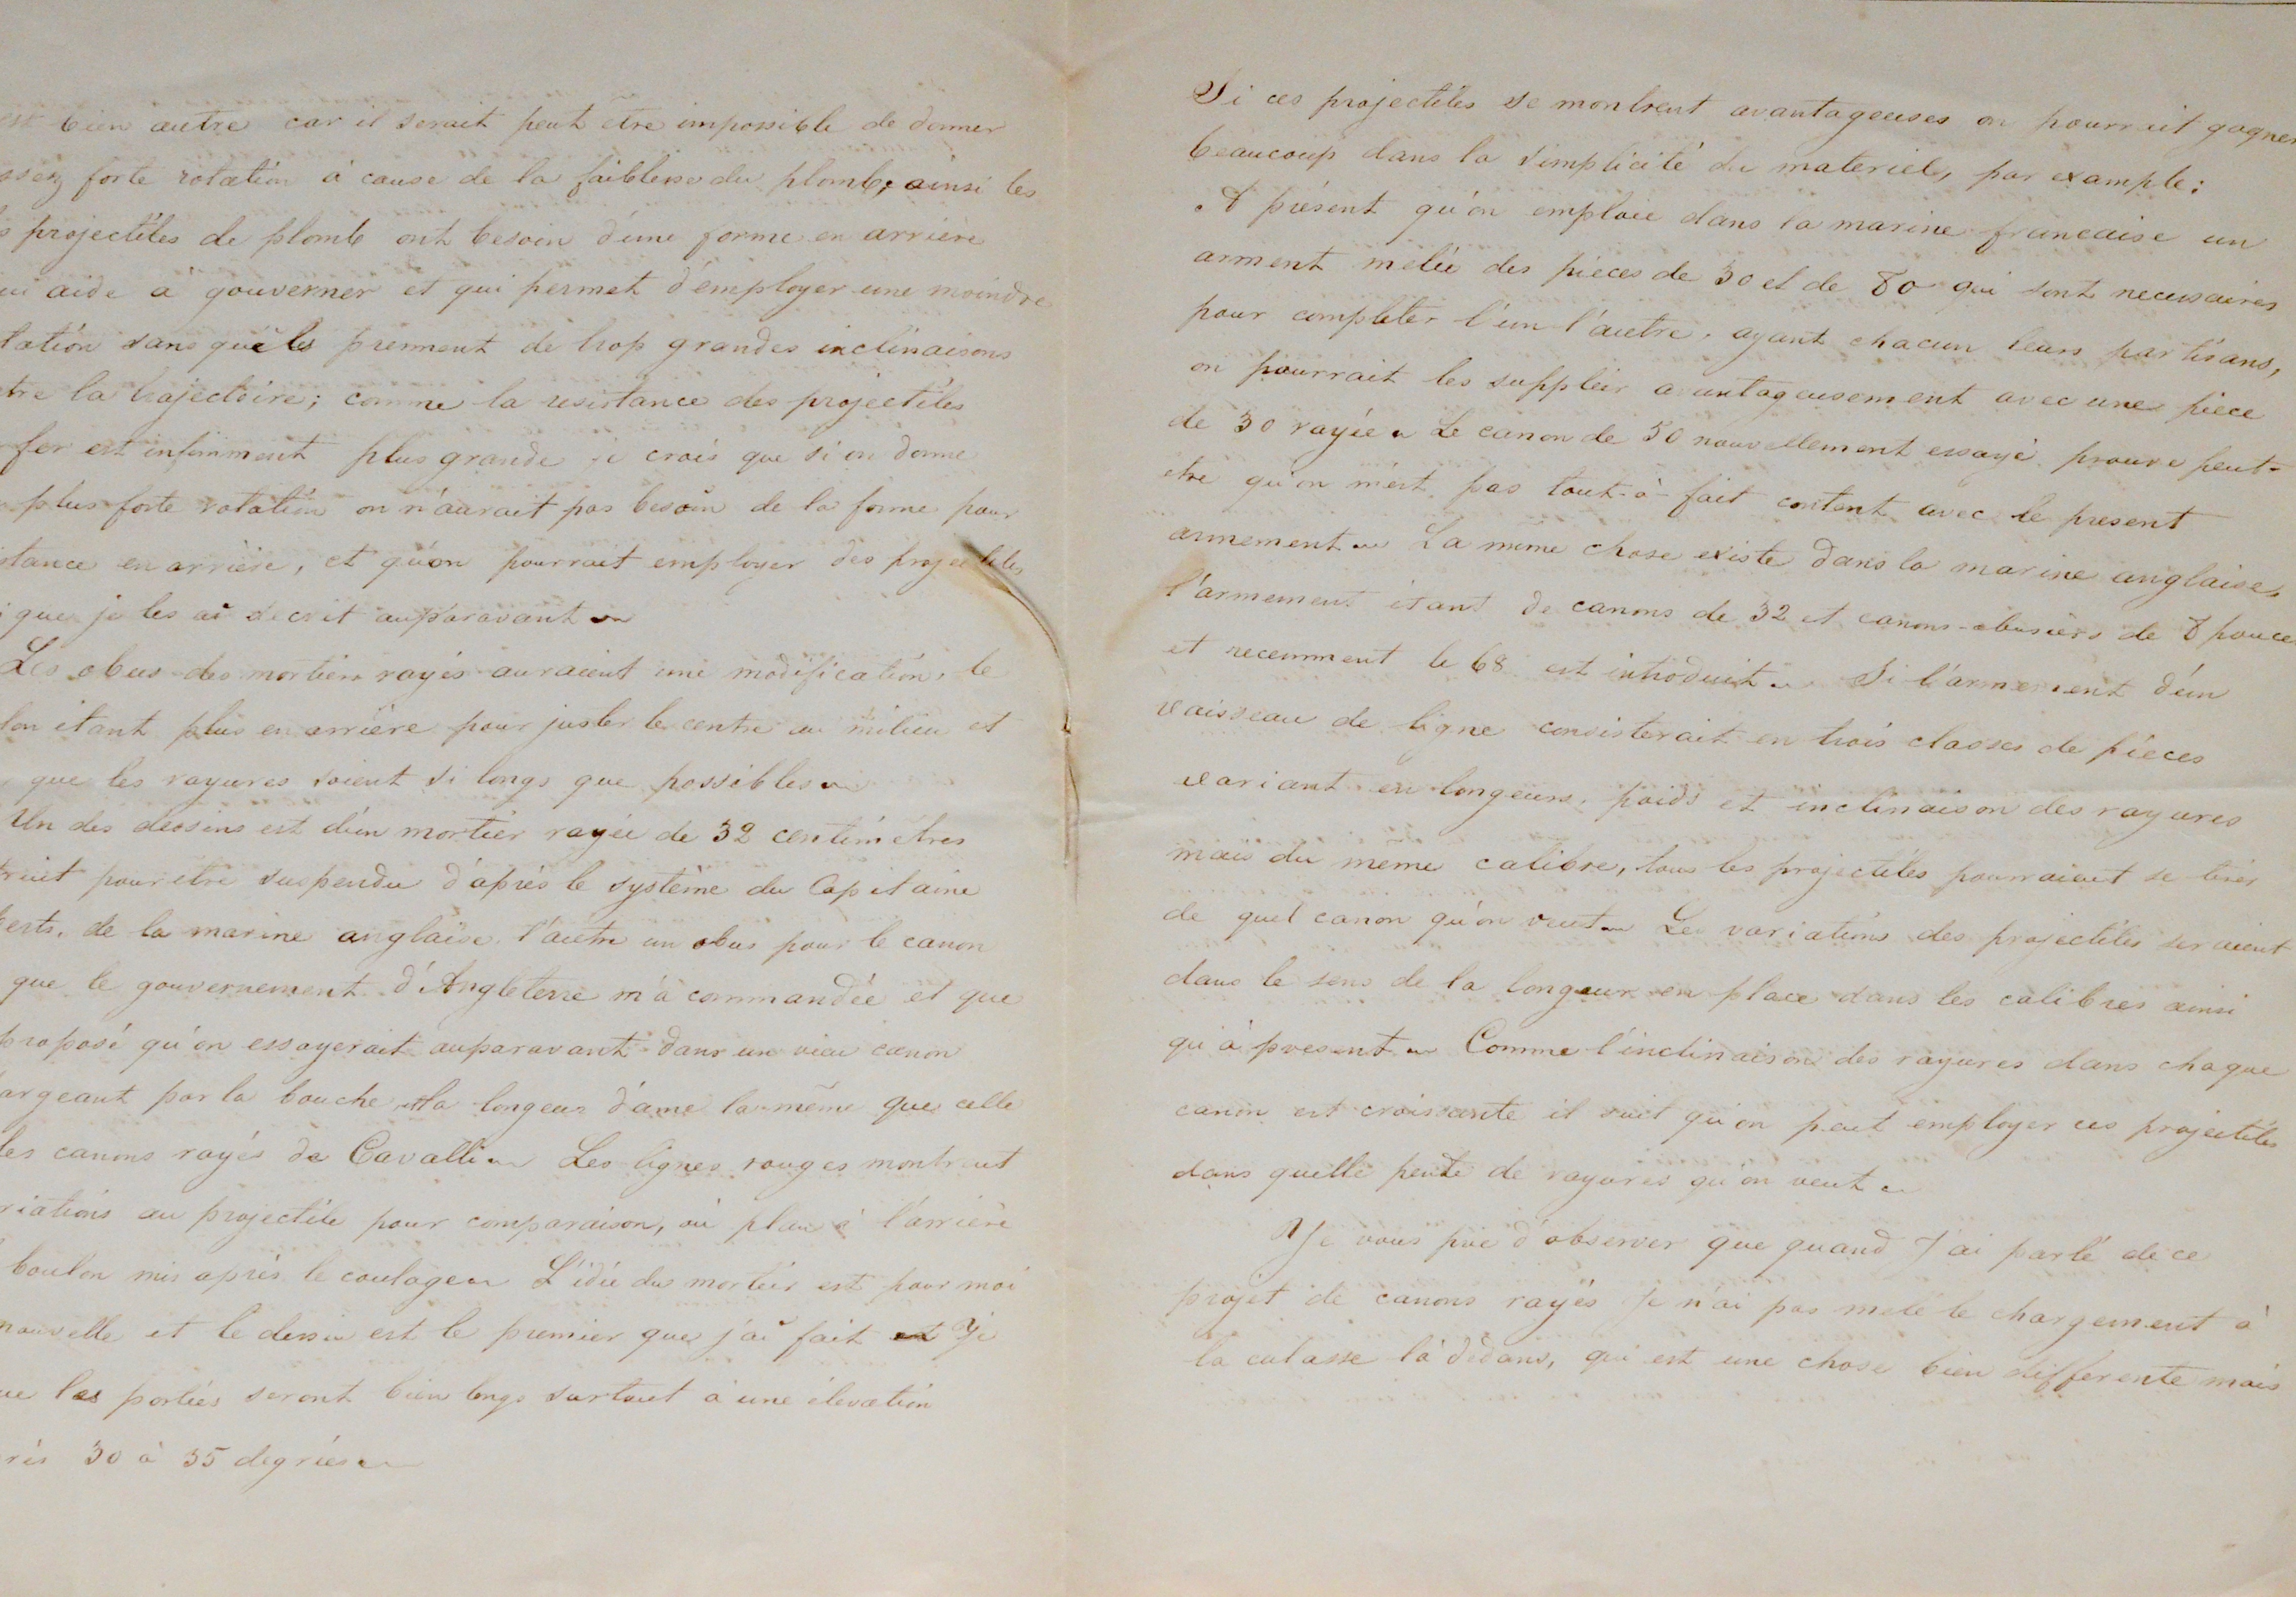 est bien autre car il serait peut etre impossible de donner
assez forte rotation à cause de la faiblesse du plomb, ainsi les
projectiles de plomb ont besoin d'une forme en arrière
qui aide à gouverner et qui permet d'employer une moindre
tation sans quels prennent de trop grandes inclinaisons
tre la trajectoire; comme la resistance des projectiles
fer est infiniment plus grande je crois que si on donne
plus forte rotation on n'aurait pas besoin de la forme pour
stance en arrière, et qu'on pourrait employer des projectiles
que je les ai decrit auparavant
Les obus des mortiers rayés auraient une modification, le
lon étant plus en arrière pour juster le centre au milieu et
que les rayures soient si longs que possibles
Un des dessins est d'un mortier rayée de 32 centimètres
truit pour etre suspendu d'après le système du Capitaine
erts, de la marine anglaise, l'autre un obus pour le canon
que le gouvernement d'Angleterre m'a commandée et que
proposé qu'on essayerait auparavant dans un vieu canon
argeant par la bouche, la longeur d'ame la même que celle
les canons rayés de Cavalli Les lignes rouges montrent
riations au projectile pour comparaison, où plan à l'arrière
boulon mis après le coulage L'idée du mortier est pour moi
nouvelle et le dessin est le premier que j'ai fait Je
ue les portées seront bien longs surtout à une élevation
rés 30 à 35 degrées
Si ces projectiles se montrent avantageuses on pourrait gagner
beaucoup dans la simplicité du materiel, par example:
A présent qu'on emploie dans la marine francaise un
arment melée des pièces de 30 et de 80 qui sont necessaires
pour completer l'un l'autre, ayant chacun leurs partisans,
on pourrait les suppléir avantageusement avec une pièce
de 30 rayée Le canon de 50 nouvellement essayé prouve peut-
etre qu'on n'est pas tout-à-fait content avec le present
armement La même chose existe dans la marine anglaise,
l'armement étant de canons de 32 et canons-obusiers de 8 pouce
et recemment le 68 est introduit Si l'armement d'un
vaisseau de ligne consisterait en trois classes de pièces
variant en longeurs, poids et inclinaison des rayures
mais du même calibre, tous les projectiles pourraient se tirer
de quel canon qu'on veut Les variations des projectiles seraient
dans le sens de la longeur en place dans les calibres ainsi
qu'à present Comme l'inclinaison des rayures dans chaque
canon est croissante il suit qu'on peut employer ces projectiles
dans quelle pente de rayures qu'on veut
Je vous prie d'observer que quand j'ai parlé de ce
projet de canons rayés je n'ai pas melé le chargement à
la culasse là dedans, qui est une chose bien differente mais